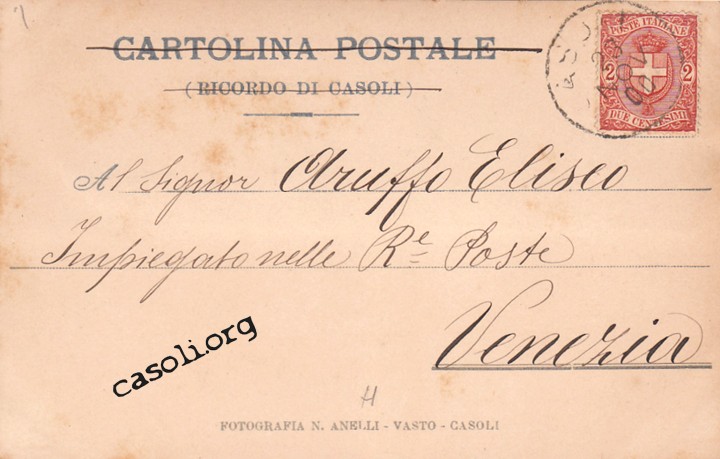 CARTOLINA POSTALE
(RICORDO DI CASOLI)
POSTE ITALIANE
2 2
DUE CENTESIMI
Al Signor Aruffo Eliseo
Impiegato nelle Re Poste
Venezia
casoli.org
H
FOTOGRAFIA N. ANELLI - VASTO - CASOLI